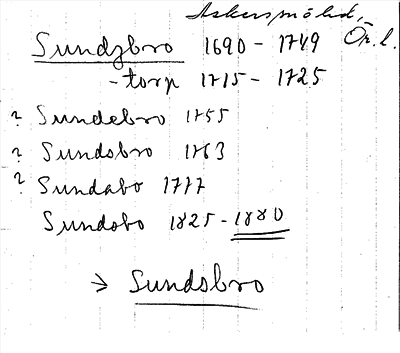 Askersunds lfs.,
Ör. l.
Sundzbro 1690 - 1749
- torp 1715 - 1725
? Sundebro 1755
? Sundsbro 1763
? Sundabo 1777
Sundsbo 1825 - 1880
→ Sundsbro